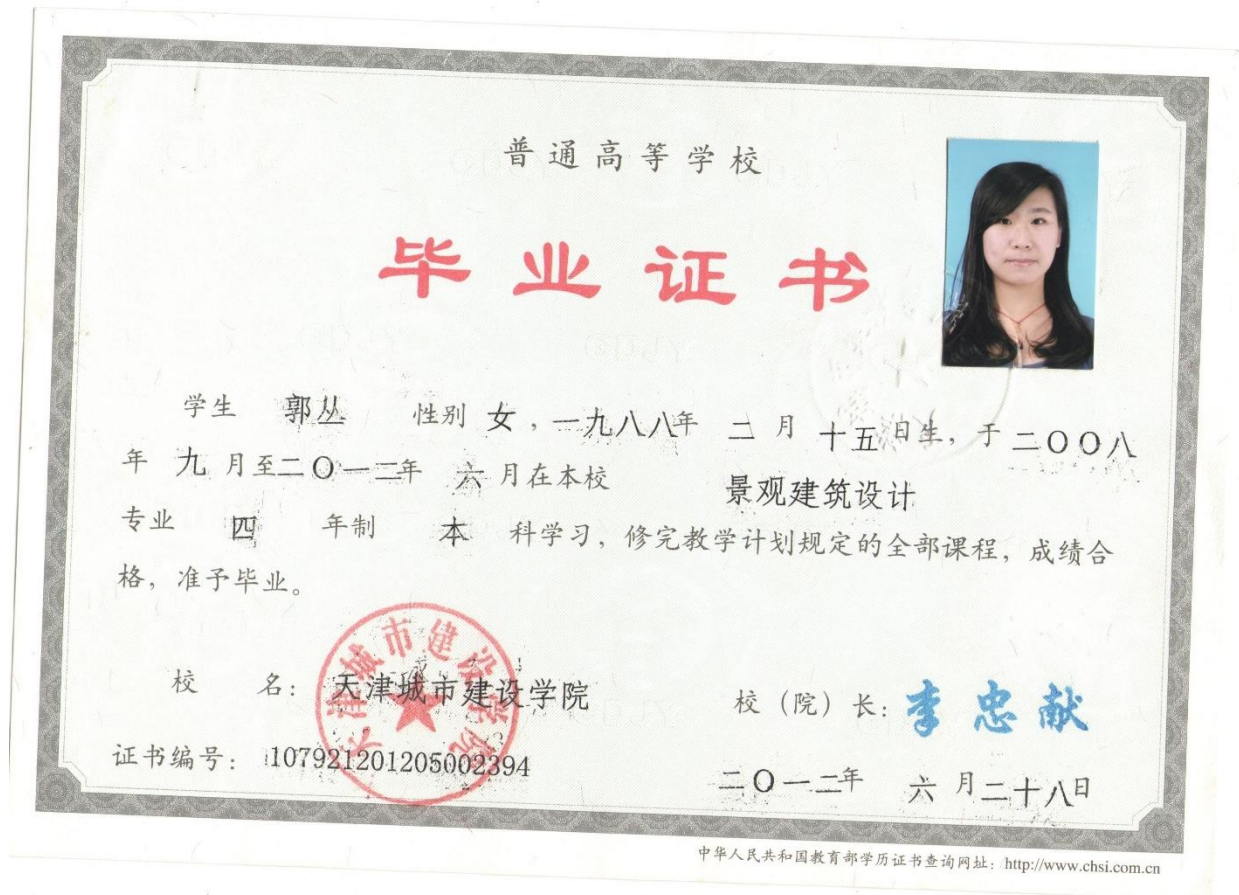 普通高等学校
毕业证书
学生 郭丛 性别 女,一九八八年 二 月 十五 日生,于 二〇〇八
年 九 月至二〇一二年 六 月在本校 景观建筑设计
专业 四 年制 本 科学习,修完教学计划规定的全部课程,成绩合
格,准予毕业。
天津城市建设学院
校 名: 天津城市建设学院 校(院)长: 李忠献
证书编号: 107921201205002394 二〇一二年 六 月二十八日
中华人民共和国教育部学历证书查询网址: http://www.chsi.com.cn